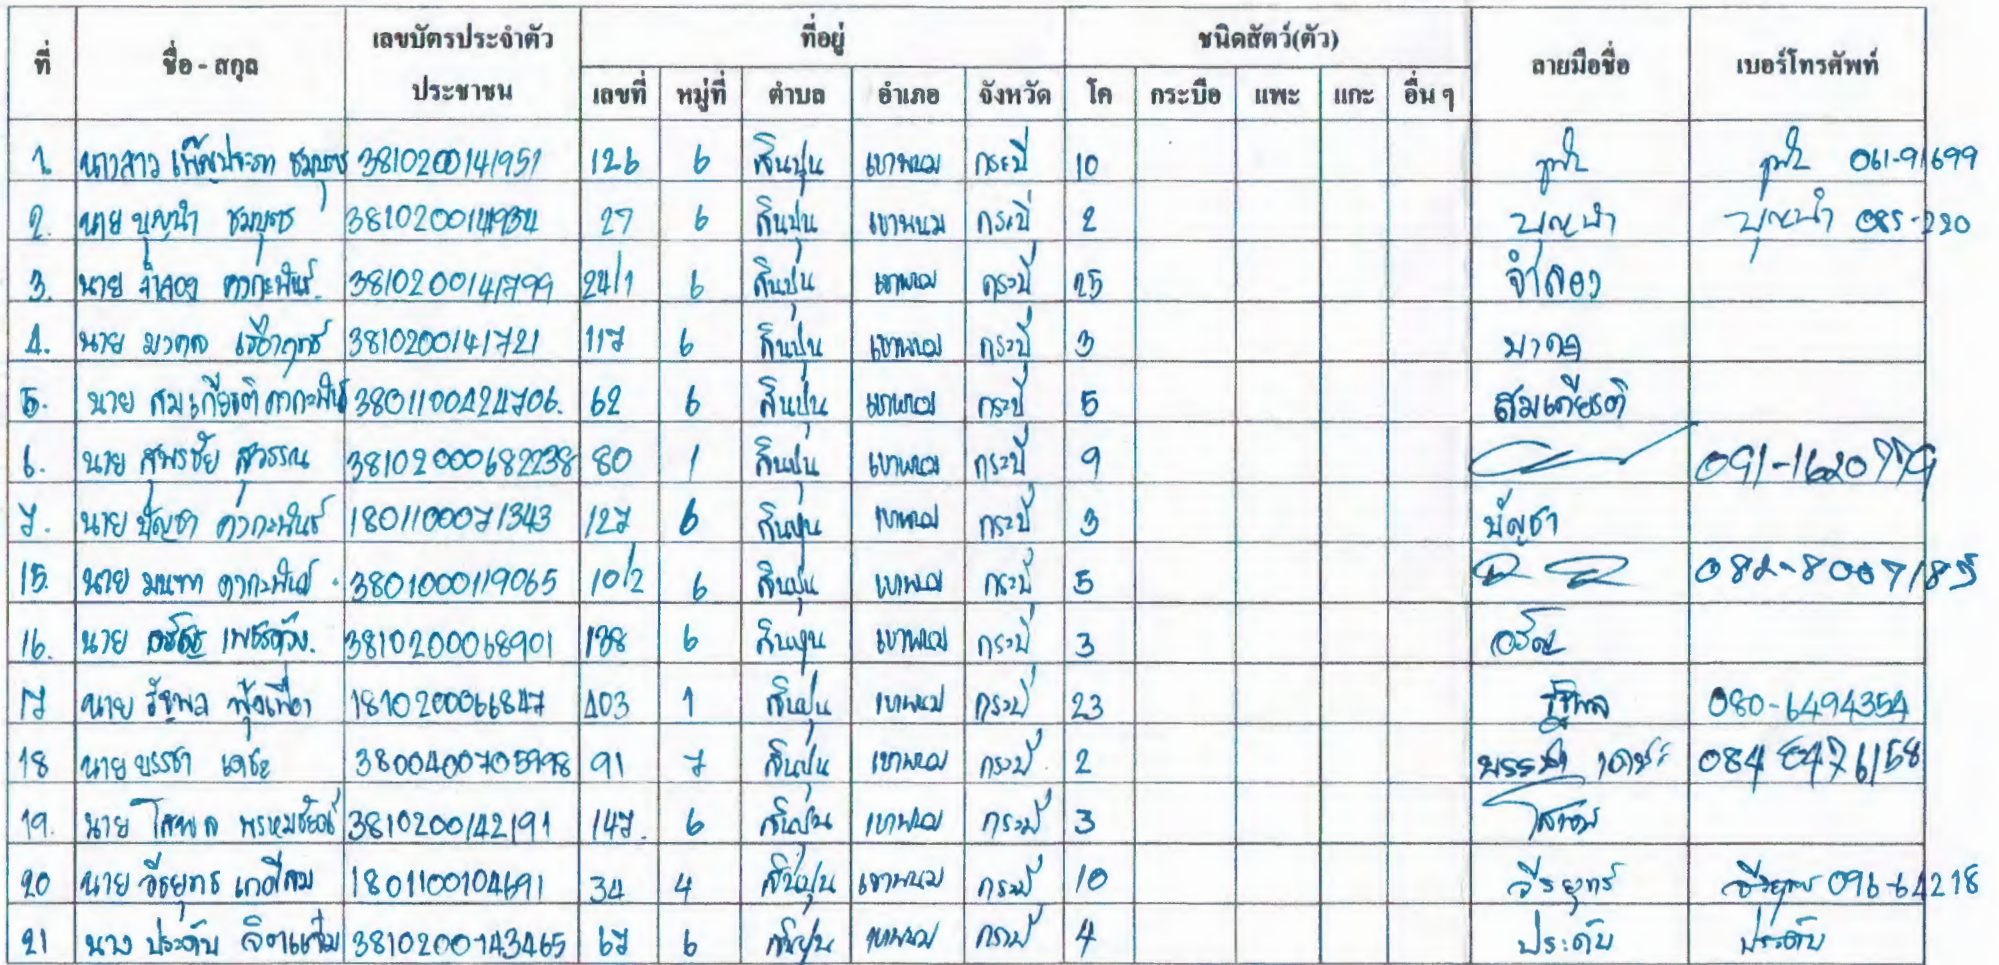 ที่ ชื่อ - สกุล เลขบัตรประจำตัวประชาชน ที่อยู่ ชนิดสัตว์(ตัว) ลายมือชื่อ เบอร์โทรศัพท์
เลขที่ หมู่ที่ ตำบล อำเภอ จังหวัด โค กระบือ แพะ แกะ อื่น ๆ
1. นางสาว 3810200141951 126 6 สินปุน เขาพนม กระบี่ 10 061-91699
2. นาย บุญนำ ชมบุตร 27 6 สินปุน เขาพนม กระบี่ 2 บุญนำ บุญนำ 085-220
3. นาย จำลอง 3810200141799 24/1 6 สินปุน เขาพนม กระบี่ 25 จำลอง
4. นาย มงคล 3810200141721 117 6 สินปุน เขาพนม กระบี่ 3
5. นาย สมเกียรติ 3801100424706. 62 6 สินปุน เขาพนม กระบี่ 5 สมเกียรติ
6. นาย สุพรชัย สุวรรณ 38102000682238 80 1 สินปุน เขาพนม กระบี่ 9 091-1620779
7. นาย บัญชา 1801100071343 127 6 สินปุน เขาพนม กระบี่ 3 บัญชา
15. นาย 3801000119065 10/2 6 สินปุน เขาพนม กระบี่ 5 082-8007185
16. นาย 3810200068901 138 6 สินปุน เขาพนม กระบี่ 3
17 นาย รัฐพล ฟุ้งเฟื่อง 1810200066847 403 1 สินปุน เขาพนม กระบี่ 23 รัฐพล 080-6494354
18 นาย บรรชา เดชะ 3800400705998 91 7 สินปุน เขาพนม กระบี่ 2 เดชะ 084 8476158
19. นาย โสภล 3810200142191 147. 6 สินปุน เขาพนม กระบี่ 3
20 นาย วีรยุทธ 1801100104691 34 4 สินปุน เขาพนม กระบี่ 10 วีรยุทธ วีรยุทธ 096-64218
21 นาง ประดับ 3810200143465 67 6 สินปุน เขาพนม กระบี่ 4 ประดับ ประดับ